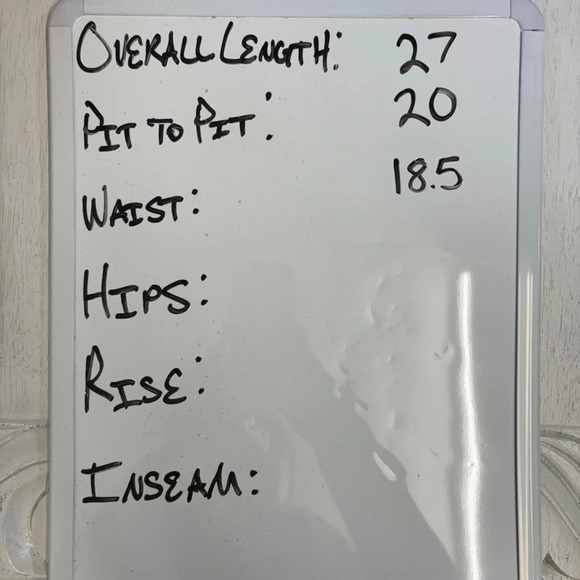 OVERALL LENGTH: 27
PIT TO PIT: 20
WAIST: 18.5
HIPS:
RISE:
INSEAM: